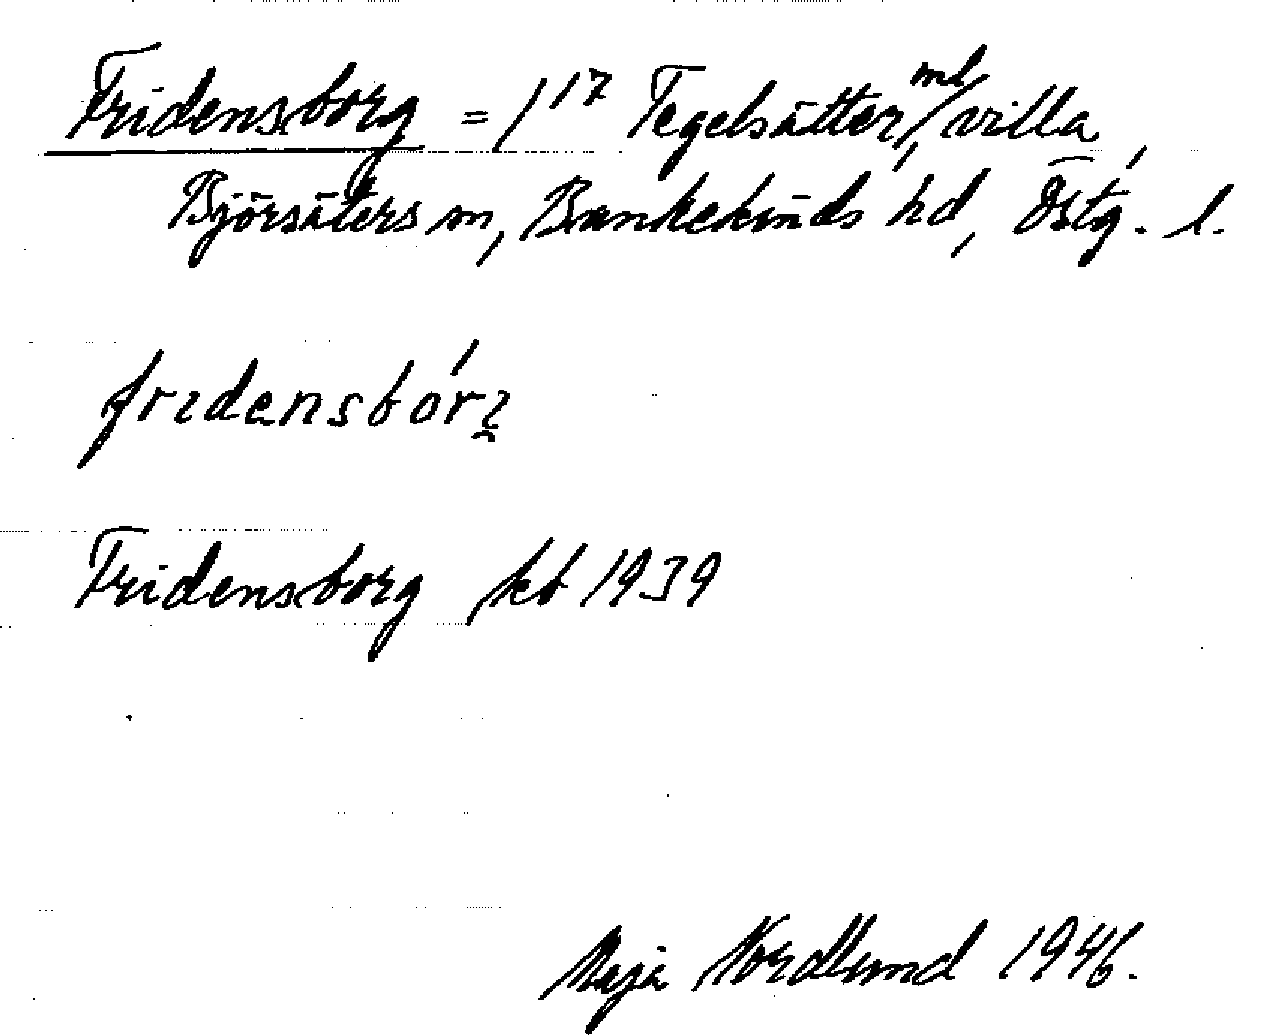 Fridensborg = 1¹⁷ Tegelsätter, ml villa,
Björsäters sn, Bankekinds hd, Östg. l.
fridensbórg
Fridensborg kb 1939
Maja Nordlund 1946.